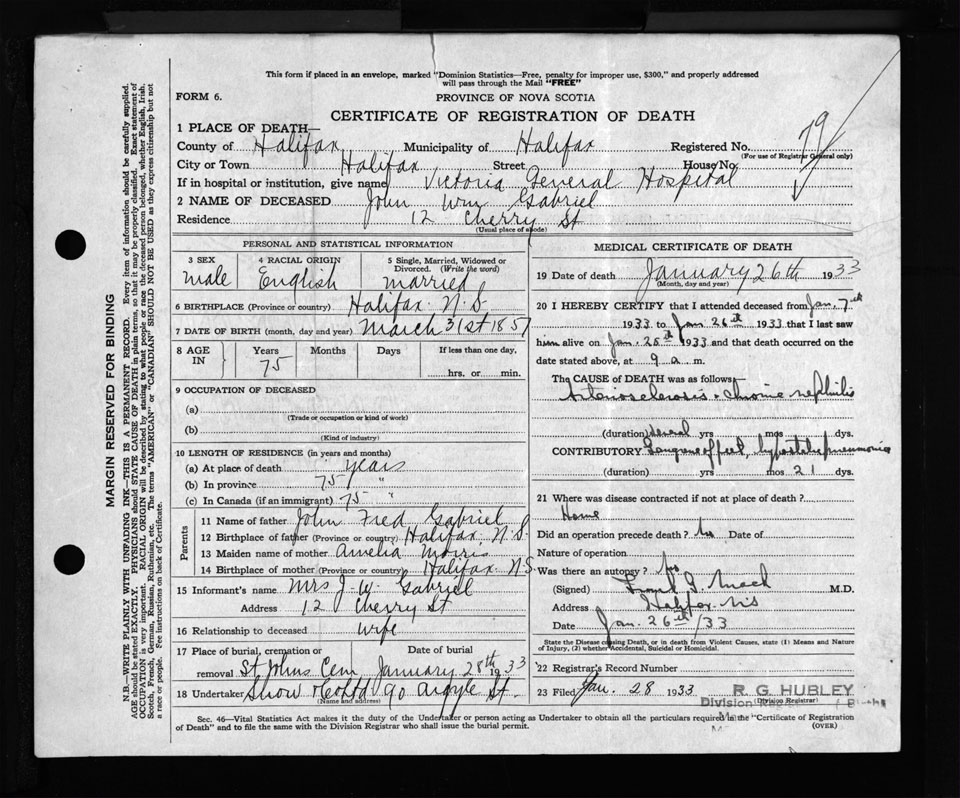 This form if placed in an envelope, marked "Dominion Statistics—Free, penalty for improper use, $300," and properly addressed
will pass through the Mail "FREE"
FORM 6.
PROVINCE OF NOVA SCOTIA
CERTIFICATE OF REGISTRATION OF DEATH
79
1 PLACE OF DEATH—
County of Halifax Municipality of Halifax Registered No.
(For use of Registrar General only)
City or Town Halifax Street House No.
If in hospital or institution, give name Victoria General Hospital
2 NAME OF DECEASED John Wm Gabriel
Residence 12 Cherry St
(Usual place of abode)
PERSONAL AND STATISTICAL INFORMATION
3 SEX 4 RACIAL ORIGIN 5 Single, Married, Widowed or Divorced. (Write the word)
male English married
6 BIRTHPLACE (Province or country) Halifax N.S.
7 DATE OF BIRTH (month, day and year) March 31st 1857
8 AGE IN Years Months Days If less than one day,
75 hrs. or min.
9 OCCUPATION OF DECEASED
(a)
(Trade or occupation or kind of work)
(b)
(Kind of industry)
10 LENGTH OF RESIDENCE (in years and months)
(a) At place of death years
(b) In province 75 "
(c) In Canada (if an immigrant) 75 "
Parents
11 Name of father John Fred Gabriel
12 Birthplace of father (Province or country) Halifax N.S.
13 Maiden name of mother Amelia Morris
14 Birthplace of mother (Province or country) Halifax N.S.
15 Informant's name Mrs J. W. Gabriel
Address 12 Cherry St
16 Relationship to deceased wife
17 Place of burial, cremation or removal Date of burial
St Johns Cem January 28th 1933
18 Undertaker Snow 90 Argyle St.
(Name and address)
MEDICAL CERTIFICATE OF DEATH
19 Date of death January 26th 1933
(Month, day and year)
20 I HEREBY CERTIFY that I attended deceased from Jan. 7th
1933 to Jan 26th 1933 that I last saw
him alive on Jan. 25th 1933 and that death occurred on the
date stated above, at 9 a. m.
The CAUSE OF DEATH was as follows
Arteriosclerosis & chronic nephritis
(duration) several yrs mos dys.
CONTRIBUTORY Gangrene of feet, hypostatic pneumonia
(duration) yrs mos 21 dys.
21 Where was disease contracted if not at place of death?
Home
Did an operation precede death? No Date of
Nature of operation
Was there an autopsy?
(Signed) Frank G. Mack M.D.
Address Halifax N.S
Date Jan. 26th/33
State the Disease causing Death, or in death from Violent Causes, state (1) Means and Nature
of Injury, (2) whether Accidental, Suicidal or Homicidal.
22 Registrar's Record Number
23 Filed Jan. 28 1933 R. G. HUBLEY
(Division Registrar)
Division
Sec. 46—Vital Statistics Act makes it the duty of the Undertaker or person acting as Undertaker to obtain all the particulars required in the "Certificate of Registration
of Death" and to file the same with the Division Registrar who shall issue the burial permit.
(OVER)
MARGIN RESERVED FOR BINDING
N.B.—WRITE PLAINLY WITH UNFADING INK—THIS IS A PERMANENT RECORD. Every item of information should be carefully supplied.
AGE should be stated EXACTLY. PHYSICIANS should STATE CAUSE OF DEATH in plain terms, so that it may be properly classified. Exact statement of
OCCUPATION is very important. RACIAL ORIGIN will be described by stating to what people or race the deceased person belonged, whether English, Irish,
Scotch, French, German, Russian, Ruthenian, etc. The terms "AMERICAN" or "CANADIAN" SHOULD NOT BE USED as they express citizenship but not
a race or people. See instructions on back of Certificate.